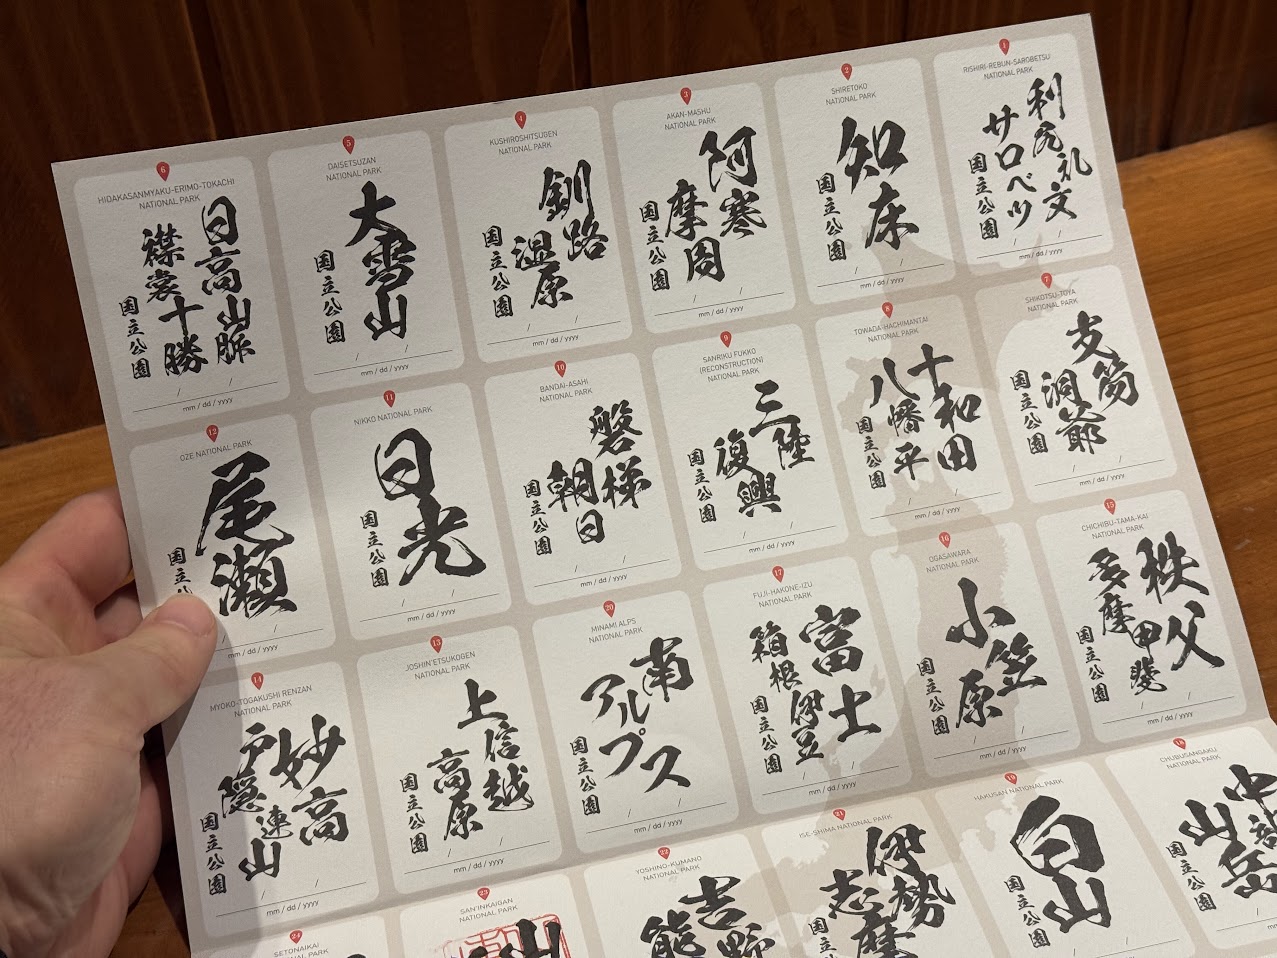 1
RISHIRI-REBUN-SAROBETSU
NATIONAL PARK
利尻礼文
サロベツ
国立公園
mm / dd / yyyy
2
SHIRETOKO
NATIONAL PARK
知床
国立公園
mm / dd / yyyy
3
AKAN-MASHU
NATIONAL PARK
阿寒
摩周
国立公園
mm / dd / yyyy
4
KUSHIROSHITSUGEN
NATIONAL PARK
釧路
湿原
国立公園
mm / dd / yyyy
5
DAISETSUZAN
NATIONAL PARK
大雪山
国立公園
mm / dd / yyyy
6
HIDAKASANMYAKU-ERIMO-TOKACHI
NATIONAL PARK
日高山脈
襟裳十勝
国立公園
mm / dd / yyyy
7
SHIKOTSU-TOYA
NATIONAL PARK
支笏
洞爺
国立公園
mm / dd / yyyy
8
TOWADA-HACHIMANTAI
NATIONAL PARK
十和田
八幡平
国立公園
mm / dd / yyyy
9
SANRIKU FUKKO
(RECONSTRUCTION)
NATIONAL PARK
三陸
復興
国立公園
mm / dd / yyyy
10
BANDAI-ASAHI
NATIONAL PARK
磐梯
朝日
国立公園
mm / dd / yyyy
11
NIKKO NATIONAL PARK
日光
国立公園
mm / dd / yyyy
12
OZE NATIONAL PARK
尾瀬
国立
mm / dd / yyyy
15
CHICHIBU-TAMA-KAI
NATIONAL PARK
秩父
多摩甲斐
国立公園
mm / dd / yyyy
16
OGASAWARA
NATIONAL PARK
小笠
原
国立公園
mm / dd / yyyy
17
FUJI-HAKONE-IZU
NATIONAL PARK
富士
箱根伊豆
国立公園
mm / dd / yyyy
20
MINAMI ALPS
NATIONAL PARK
南
アルプス
国立公園
mm / dd / yyyy
13
JOSHIN'ETSUKOGEN
NATIONAL PARK
上信越
高原
国立公園
mm / dd / yyyy
14
MYOKO-TOGAKUSHI RENZAN
NATIONAL PARK
妙高
戸隠連山
国立公園
mm / dd / yyyy
18
CHUBUSANGAKU
NATIONAL PARK
中部
山岳
国立公園
19
HAKUSAN NATIONAL PARK
白山
国立公園
mm / dd / yyyy
21
ISE-SHIMA NATIONAL PARK
伊勢
志摩
国立公
22
YOSHINO-KUMANO
NATIONAL PARK
吉野
SAN'INKAIGAN
NATIONAL PARK
山
24
SETONAIKAI
NATIONAL PARK